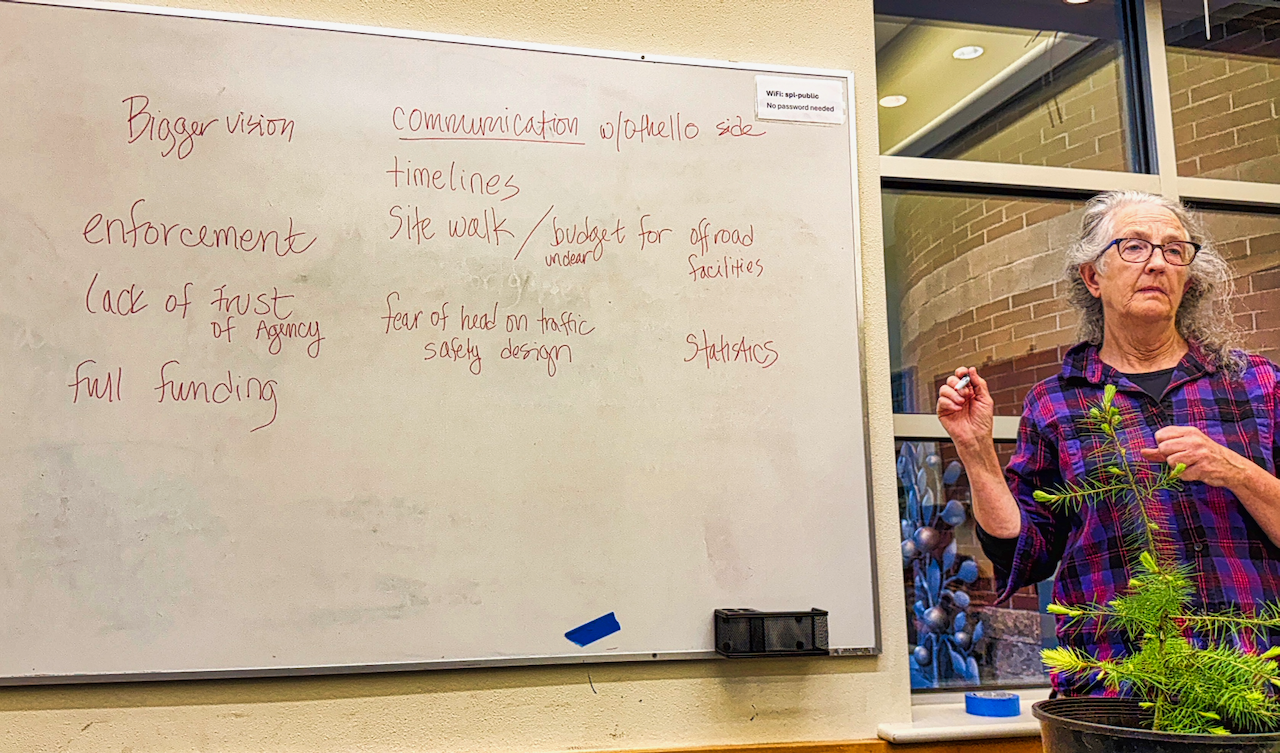 WiFi: spl-public
No password needed
Bigger vision
communication w/othello side
timelines
enforcement
Site walk / budget for offroad
unclear facilities
lack of trust
of Agency
fear of head on traffic
safety design
Statistics
full funding